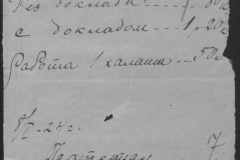 без доклада... 80 к.
с докладом... 1 р. 20 к
работа 1 халата... 50 к
8/I - 24 г.
7